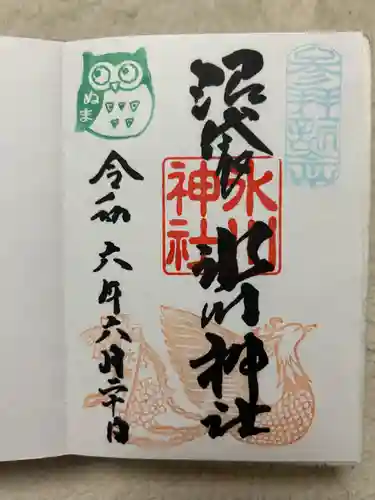 参拝記念
沼袋 氷川神社
氷川神社
ぬま
令和六年六月二十日